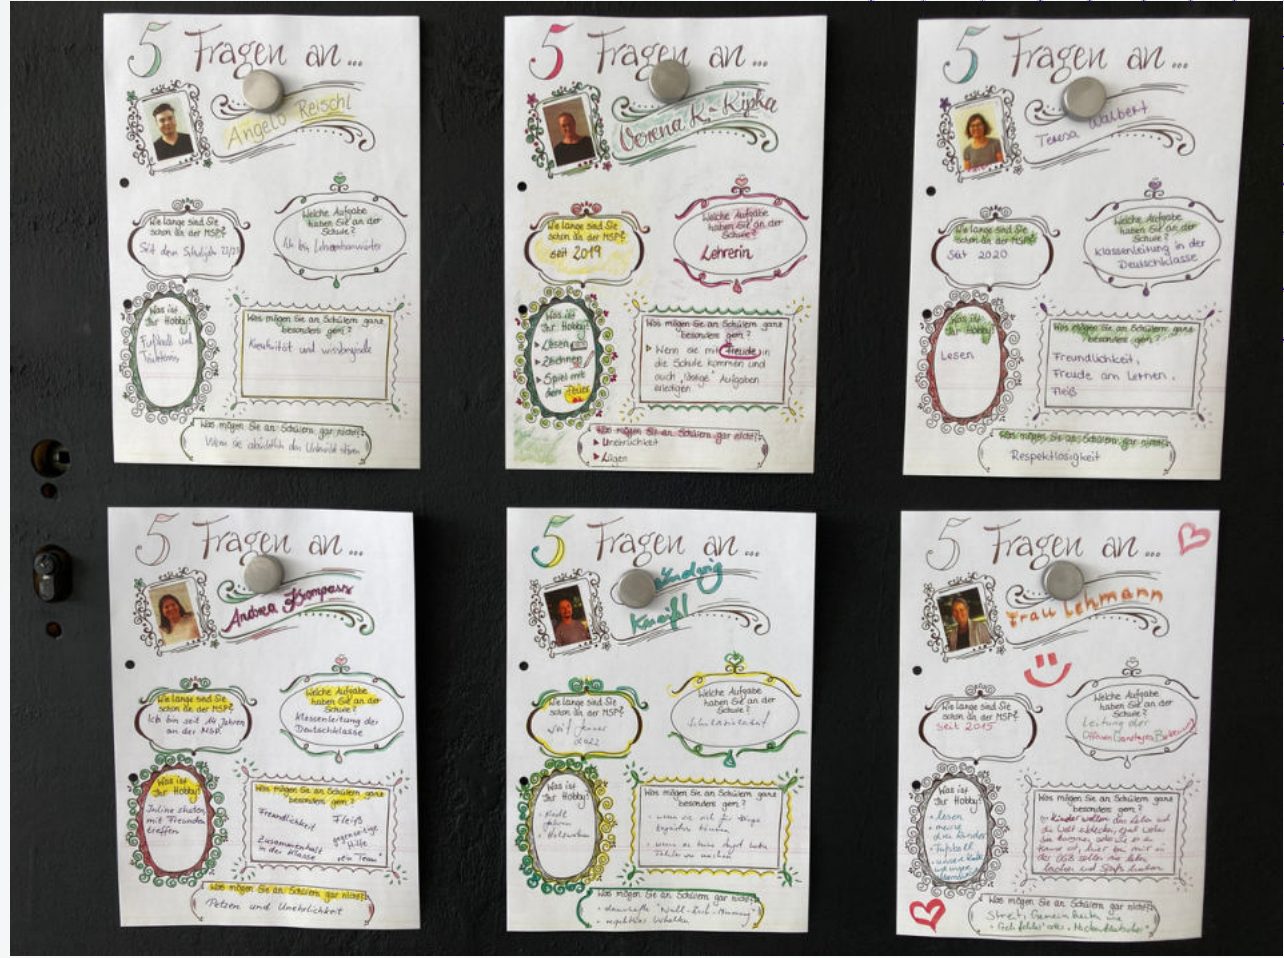 5 Fragen an...
Angelo Reischl
Wie lange sind Sie
schon an der MSP?
Seit dem Schuljahr 22/23
Welche Aufgabe
haben Sie an der
Schule?
Ich bin Lehramtsanwärter
Was ist
Ihr Hobby?
Fußball und
Was mögen Sie an Schülern ganz
besonders gern?
Kreativität und
Was mögen Sie an Schülern gar nicht?
Wenn sie absichtlich den Unterricht stören
5 Fragen an...
Verena K.-Kipka
Wie lange sind Sie
schon an der MSP?
seit 2019
Welche Aufgabe
haben Sie an der
Schule?
Lehrerin
Was ist
Ihr Hobby?
Lesen
Zeichnen
Spiel mit
dem Feuer
Was mögen Sie an Schülern ganz
besonders gern?
Wenn sie mit Freude in
die Schule kommen und
auch "lästige" Aufgaben
erledigen
Was mögen Sie an Schülern gar nicht?
Unehrlichkeit
Lügen
5 Fragen an...
Teresa Walbert
Wie lange sind Sie
schon an der MSP?
Seit 2020
Welche Aufgabe
haben Sie an der
Schule?
Klassenleitung in der
Deutschklasse
Was ist
Ihr Hobby?
Lesen
Was mögen Sie an Schülern ganz
besonders gern?
Freundlichkeit,
Freude am Lernen,
Fleiß
Was mögen Sie an Schülern gar nicht?
Respektlosigkeit
5 Fragen an...
Andrea
Wie lange sind Sie
schon an der MSP?
Ich bin seit 14 Jahren
an der MSP.
Welche Aufgabe
haben Sie an der
Schule?
Klassenleitung der
Deutschklasse
Was ist
Ihr Hobby?
Inline skaten
mit Freunden
treffen
Was mögen Sie an Schülern ganz
besonders gern?
Freundlichkeit Fleiß
Zusammenhalt gegenseitige
in der Klasse Hilfe
"ein Team"
Was mögen Sie an Schülern gar nicht?
Petzen und Unehrlichkeit
5 Fragen an...
Ludwig
Kneißl
Wie lange sind Sie
schon an der MSP?
seit
2022
Welche Aufgabe
haben Sie an der
Schule?
Was ist
Ihr Hobby?
Was mögen Sie an Schülern ganz
besonders gern?
- wenn sie sich für Dinge
begeistern können
- wenn sie keine Angst haben
Fehler zu machen
Was mögen Sie an Schülern gar nicht?
- dauerhafte "Null-Bock-Meinung"
- Verhalten
5 Fragen an...
Frau Lehmann
Wie lange sind Sie
schon an der MSP?
seit 2015
Welche Aufgabe
haben Sie an der
Schule?
Leitung der
Offenen Ganztags Betreuung
Was ist
Ihr Hobby?
- lesen
- meine
drei Kinder
- Fußball
Was mögen Sie an Schülern ganz
besonders gern?
Kinder wollen das Leben und
die Welt entdecken,
Was mögen Sie an Schülern gar nicht?
Streit, Gemeinheiten wie